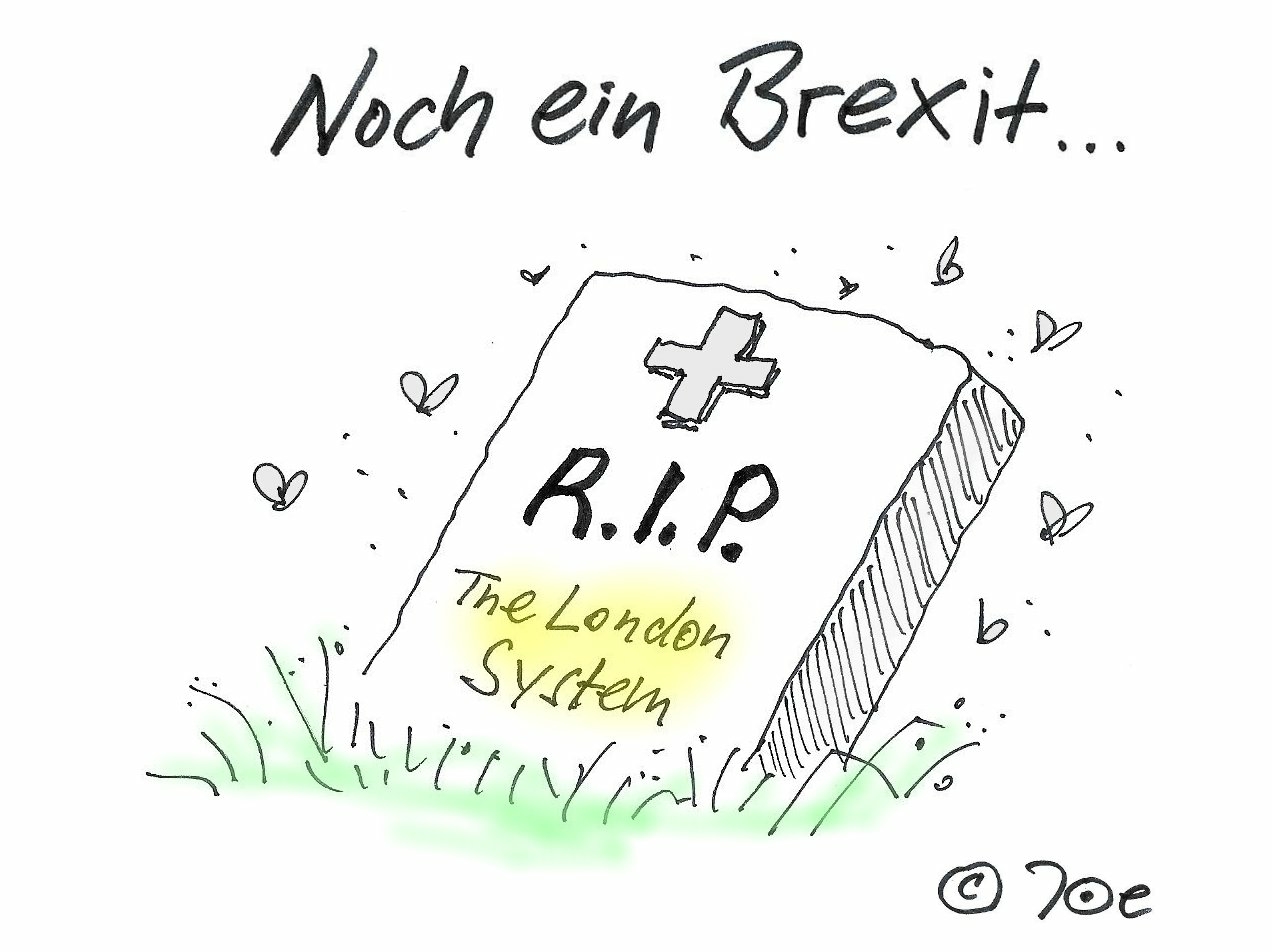 Noch ein Brexit...
R.I.P.
The London
System
© Joe